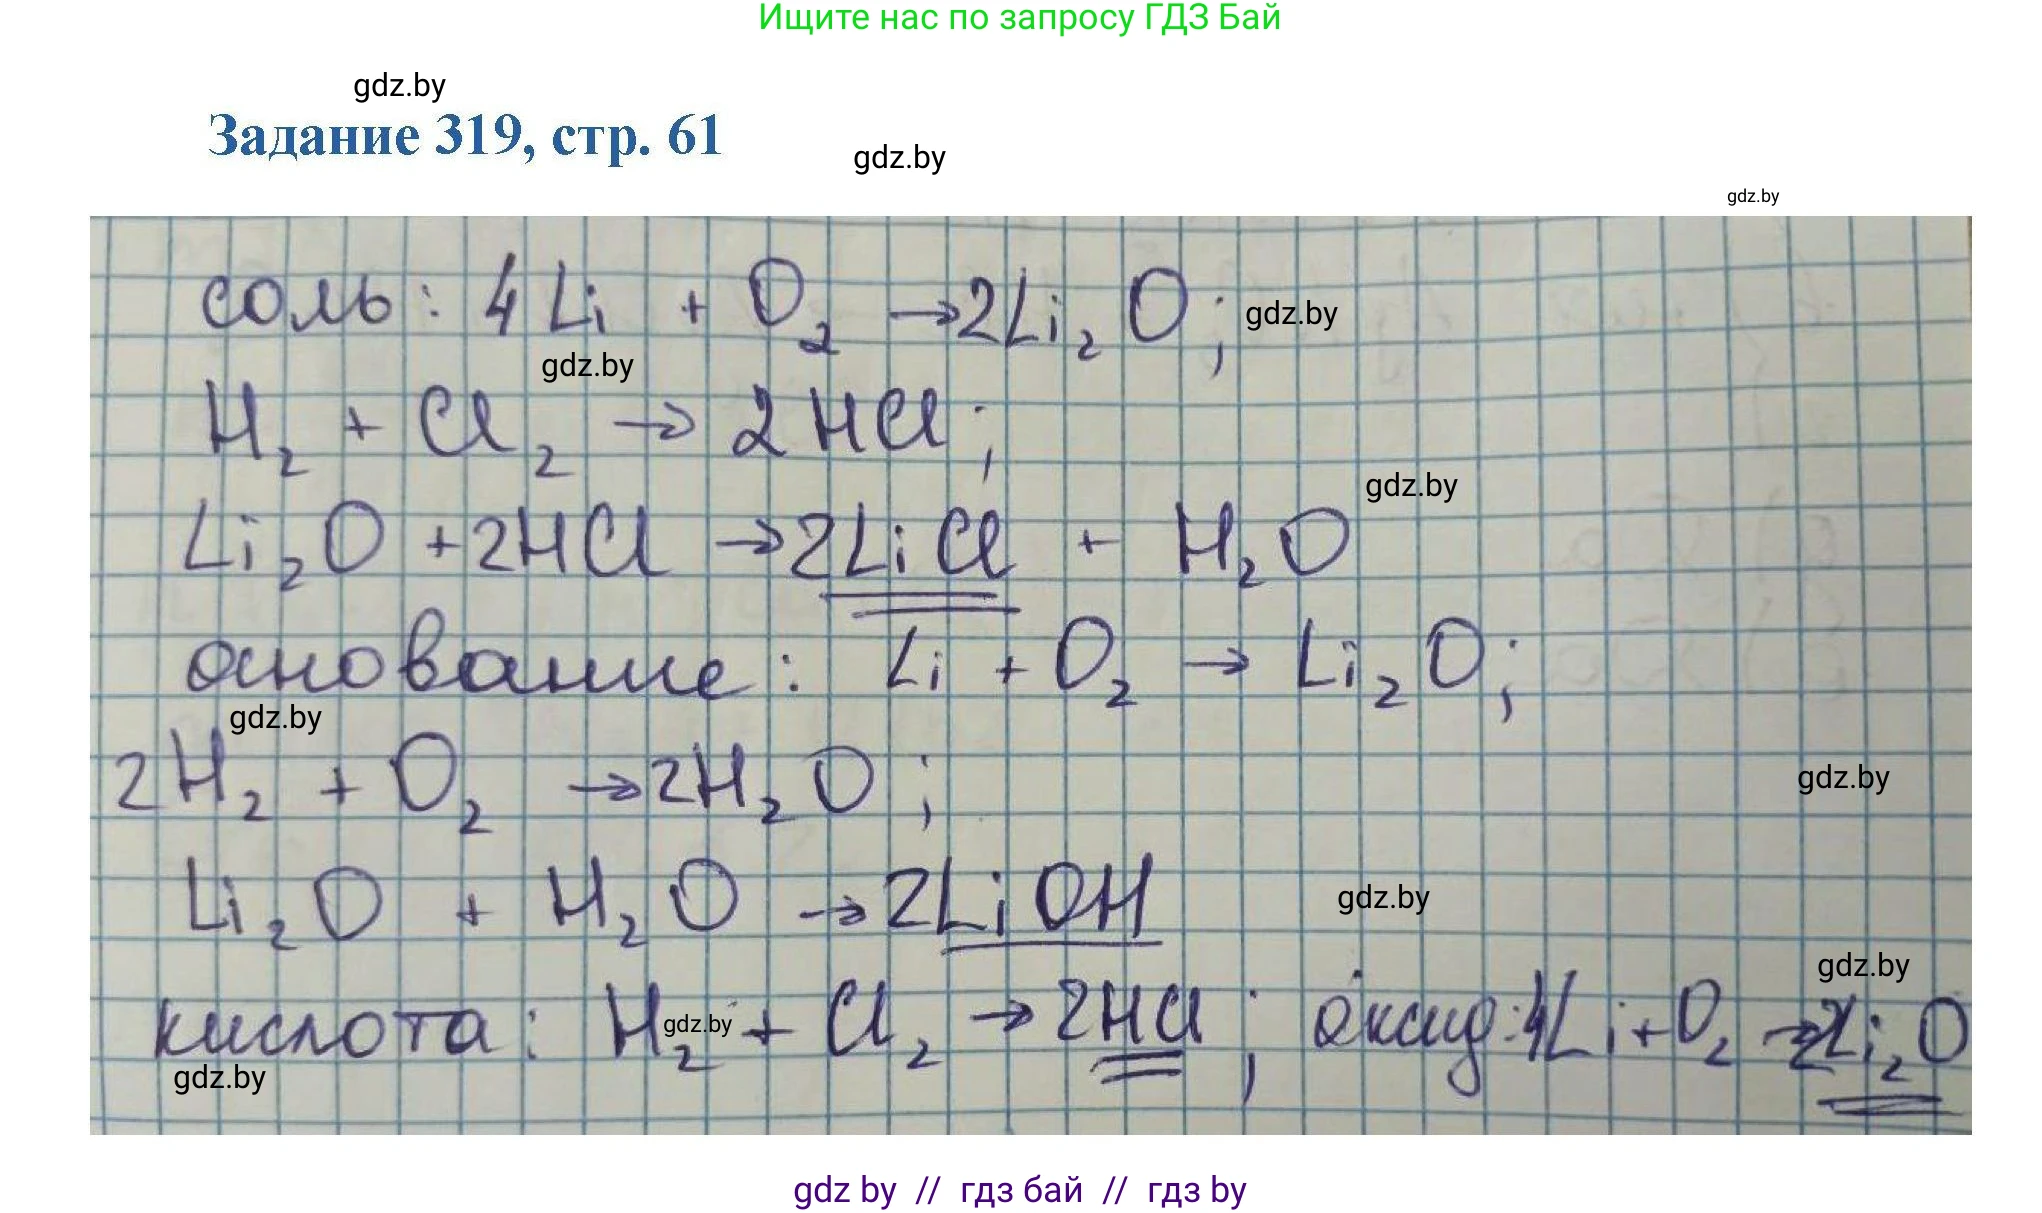 Ищите нас по запросу ГДЗ Бай
gdz.by
Задание 319, стр. 61
gdz.by
gdz.by
соль: 4Li + O₂ → 2Li₂O; gdz.by
gdz.by
H₂ + Cl₂ → 2HCl;
gdz.by
Li₂O + 2HCl → 2LiCl + H₂O
основание: Li + O₂ → Li₂O;
gdz.by
2H₂ + O₂ → 2H₂O;
gdz.by
Li₂O + H₂O → 2LiOH
gdz.by
gdz.by
кислота: H₂ + Cl₂ → 2HCl; оксид: 4Li + O₂ → 2Li₂O
gdz.by
gdz.by
gdz by // гдз бай // гдз by